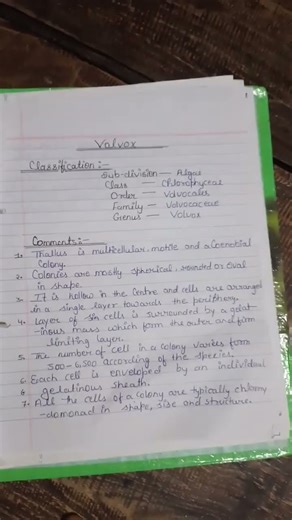 Volvox
Classification :-
Sub-division — Algae
Class — Chlorophyceae
Order — Volvocales
Family — Volvocaceae
Genus — Volvox
Comments :-
1. Thallus is multicellular, motile and a coenobial
Colony.
2. Colonies are mostly spherical, rounded or oval
in shape.
3. It is hollow in the centre and cells are arranged
in a single layer towards the periphery.
4. Layer of cells is surrounded by a gelat-
-inous mass which form the outer and firm
limiting layer.
5. The number of cell in a colony varies from
500-6,500 according of the species.
6. Each cell is enveloped by an individual
gelatinous sheath.
7. All the cells of a colony are typically chlamy
-domonad in shape, size and structure.